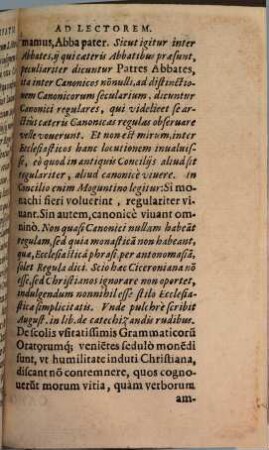 AD LECTOREM.
mamus, Abba pater. Sicut igitur inter
Abbates, ij qui cæteris Abbatibus præsunt,
peculiariter dicuntur Patres Abbates,
ita inter Canonicos nõnulli, ad distinctio-
nem Canonicorum secularium, dicuntur
Canonici regulares, qui videlicet se ar-
ctius cæteris Canonicas regulas obseruare
velle vouerunt. Et non est mirum, inter
Ecclesiasticos hanc locutionem inualuis-
se, eò quod in antiquis Concilijs aliud sit
regulariter, aliud canonicè viuere. In
Concilio enim Moguntino legitur: Si mo-
nachi fieri voluerint, regulariter vi-
uant. Sin autem, canonicè viuant om-
ninò. Non quasi Canonici nullam habeãt
regulam, sed quia monasticã non habeant,
qua, Ecclesiastica phrasi, per antonomasiã,
solet Regula dici. Scio hæc Ciceroniana nõ
esse, sed Christianos ignorare non oportet,
indulgendum nonnihil esse stilo Ecclesia-
sticæ simplicitatis. Vnde pulchrè scribit
August. in lib. de catechizandis rudibus.
De scolis vsitatissimis Grammaticorũ
Oratorumq; veniẽtes sedulò monẽdi
sunt, vt humilitate induti Christiana,
discant nõ contemnere, quos cogno-
uerũt morum vitia, quàm verborum
am-